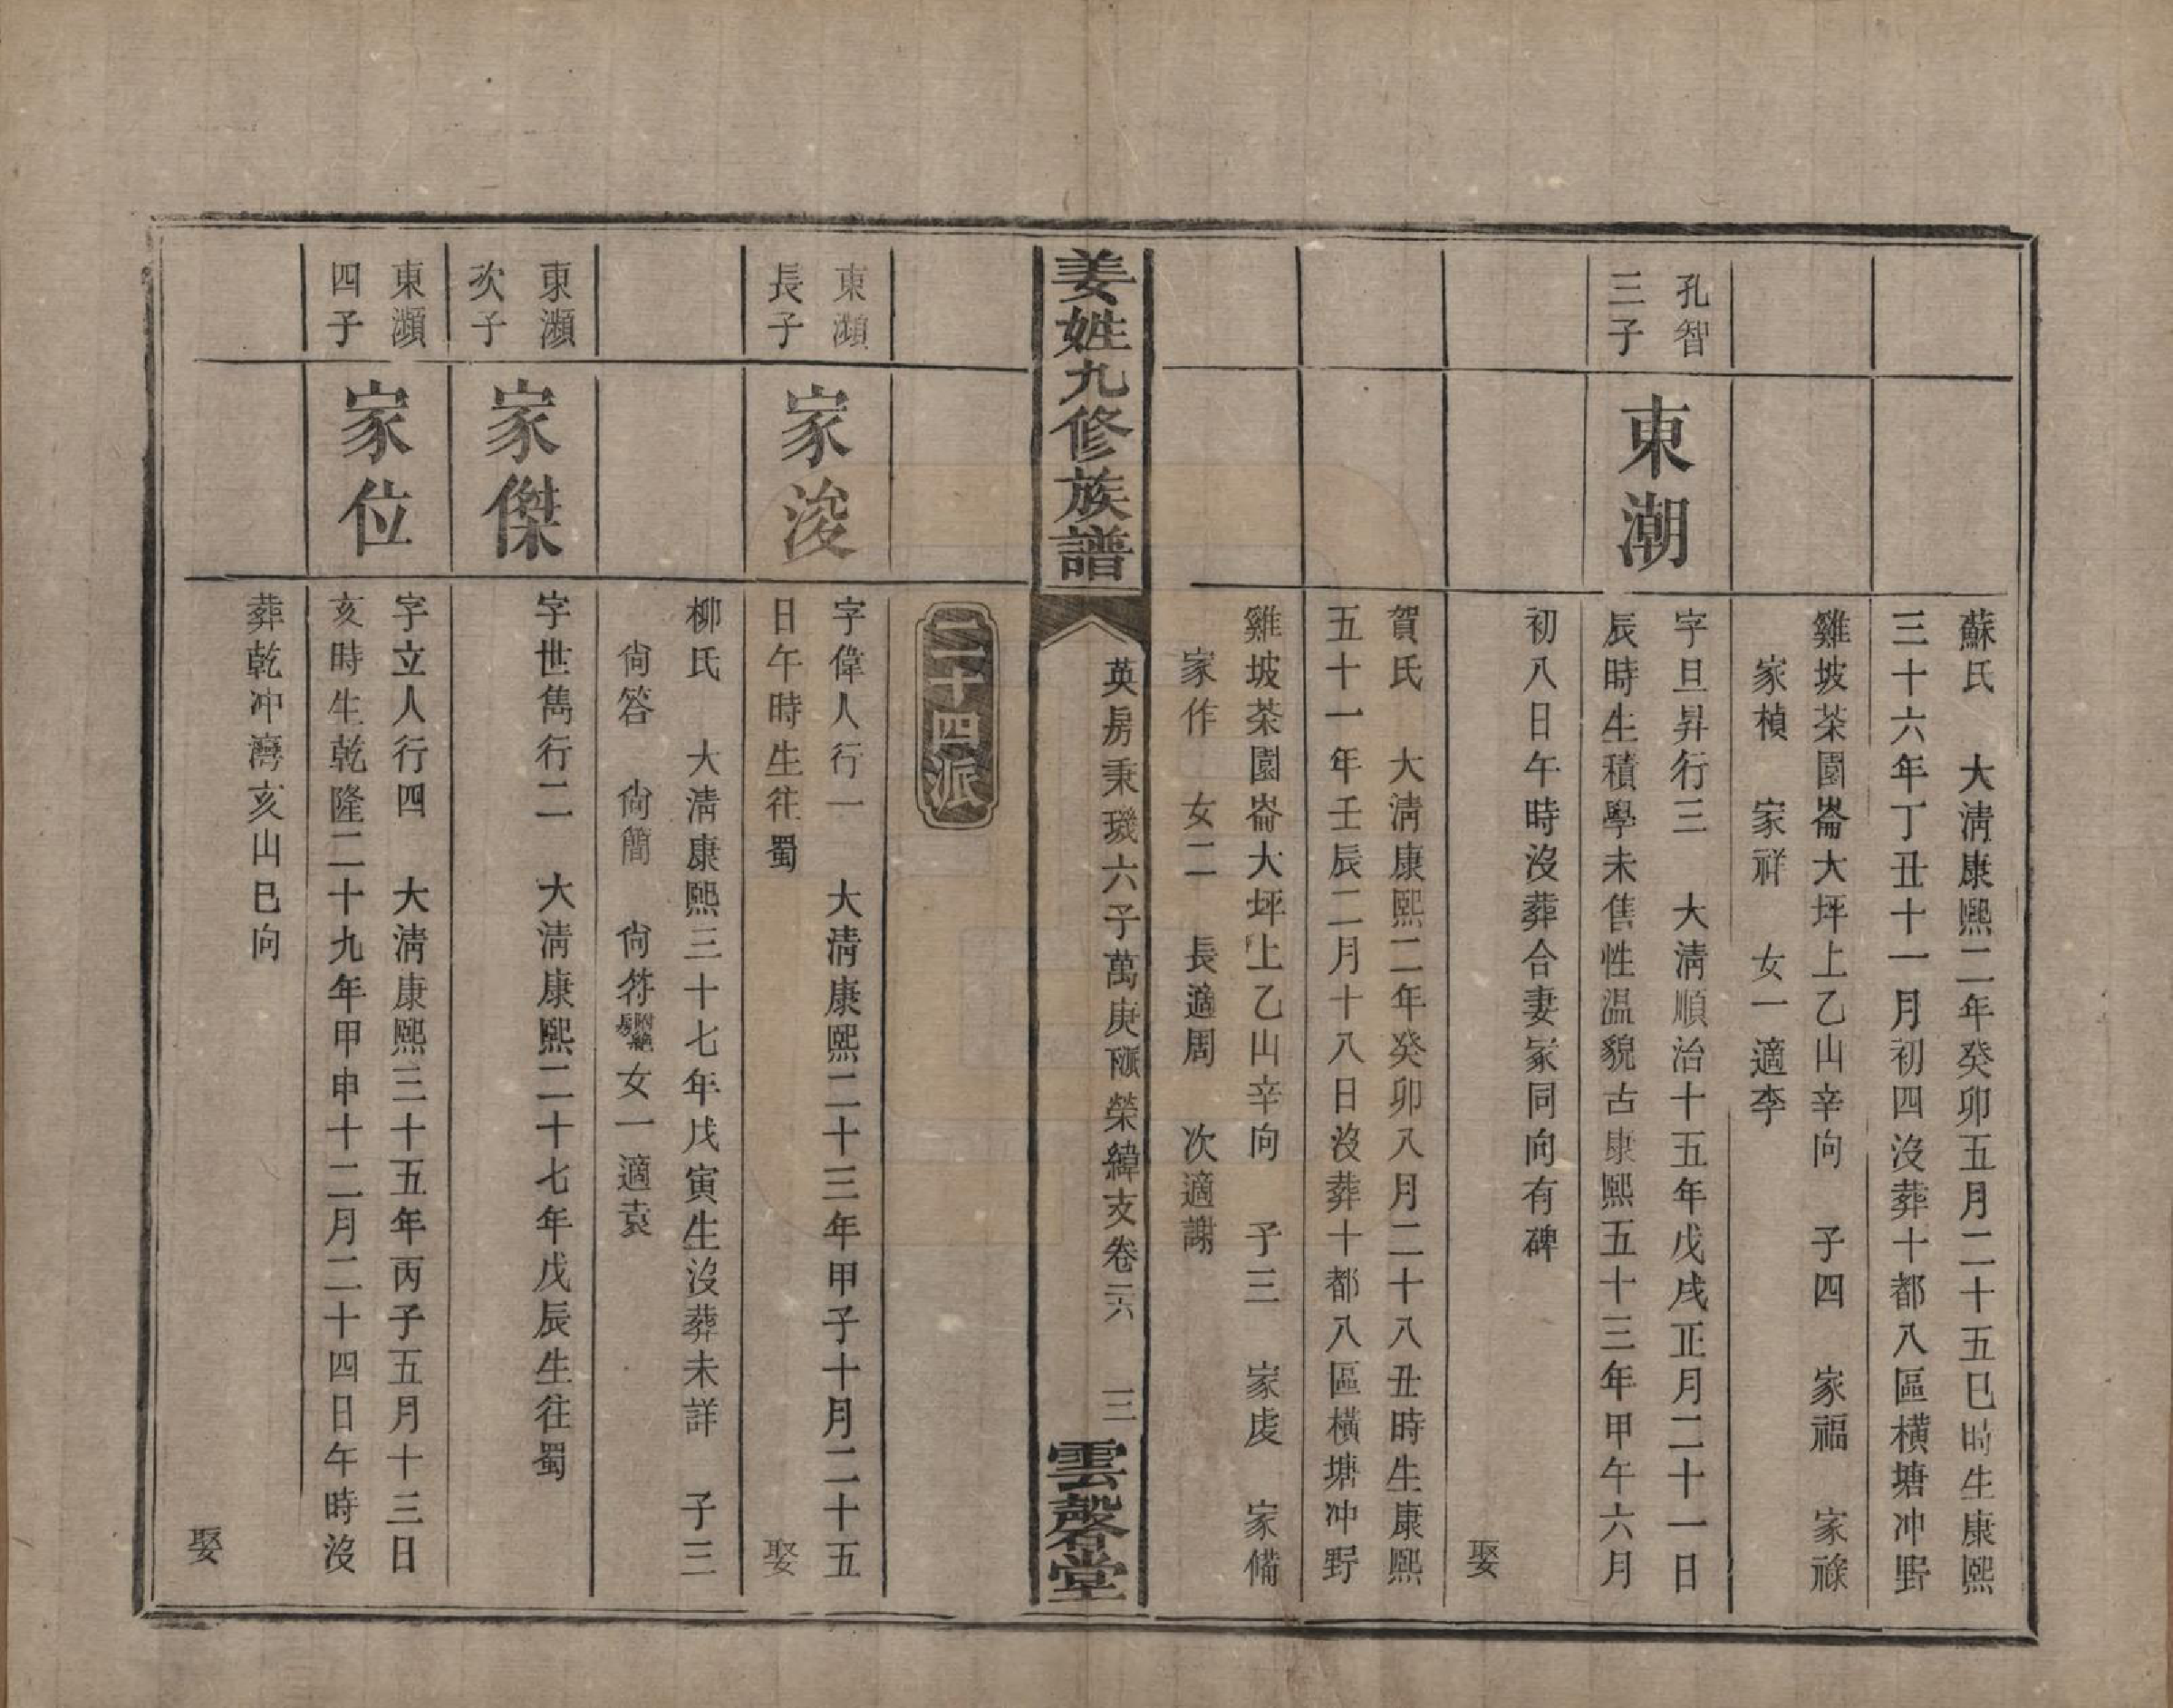 蘇氏　大清康熙二年癸卯五月二十五巳時生康熙
三十六年丁丑十一月初四沒葬十都八區橫塘冲野
雞坡茶園崙大坪上乙山辛向　子四　家福　家祿
家楨　家祥　女一適李
孔智
三子
東潮
字旦昇行三　大清順治十五年戊戌正月二十一日
辰時生積學未售性温貌古康熙五十三年甲午六月
初八日午時沒葬合妻冢同向有碑
娶
賀氏　大清康熙二年癸卯八月二十八丑時生康熙
五十一年壬辰二月十八日沒葬十都八區橫塘冲野
雞坡茶園崙大坪上乙山辛向　子三　家虔　家備
家作　女二　長適周　次適謝
姜姓九修族譜
英房秉璣六子萬庚𠩄榮緯支卷三六　三
雲磬堂
二十四派
東瀕
長子
家浚
字偉人行一　大清康熙二十三年甲子十月二十五
日午時生往蜀
娶
柳氏　大清康熙三十七年戊寅生沒葬未詳　子三
尙答　尙簡　尙符　女一適袁
東瀕
次子
家傑
字世雋行二　大清康熙二十七年戊辰生往蜀
東瀕
四子
家位
字立人行四　大清康熙三十五年丙子五月十三日
亥時生乾隆二十九年甲申十二月二十四日午時沒
葬乾冲灣亥山巳向
娶